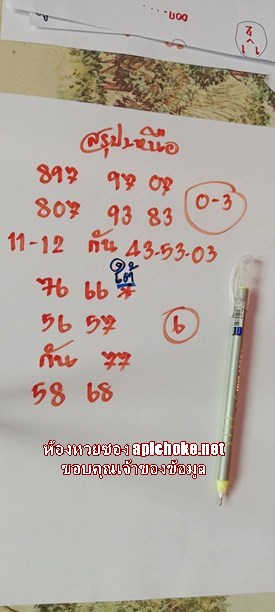 สรุปเหนือ
897 97 07
807 93 83
0-3
11-12 กัน 43-53-03
ใต้
76 66 7
56 57
6
กัน 77
58 68
ห้องหวยซอง apichoke.net
ขอบคุณเจ้าของข้อมูล